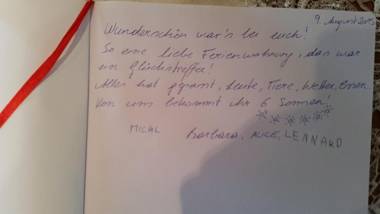 9. August 2015
Wunderschön war's bei euch!
So eine liebe Ferienwohnung, das war
ein Glückstreffer!
Alles hat gepasst, Leute, Tiere, Wetter, Essen.
Von uns bekommt ihr 6 Sonnen!
MICHL Barbara, ALICE, LENNARD